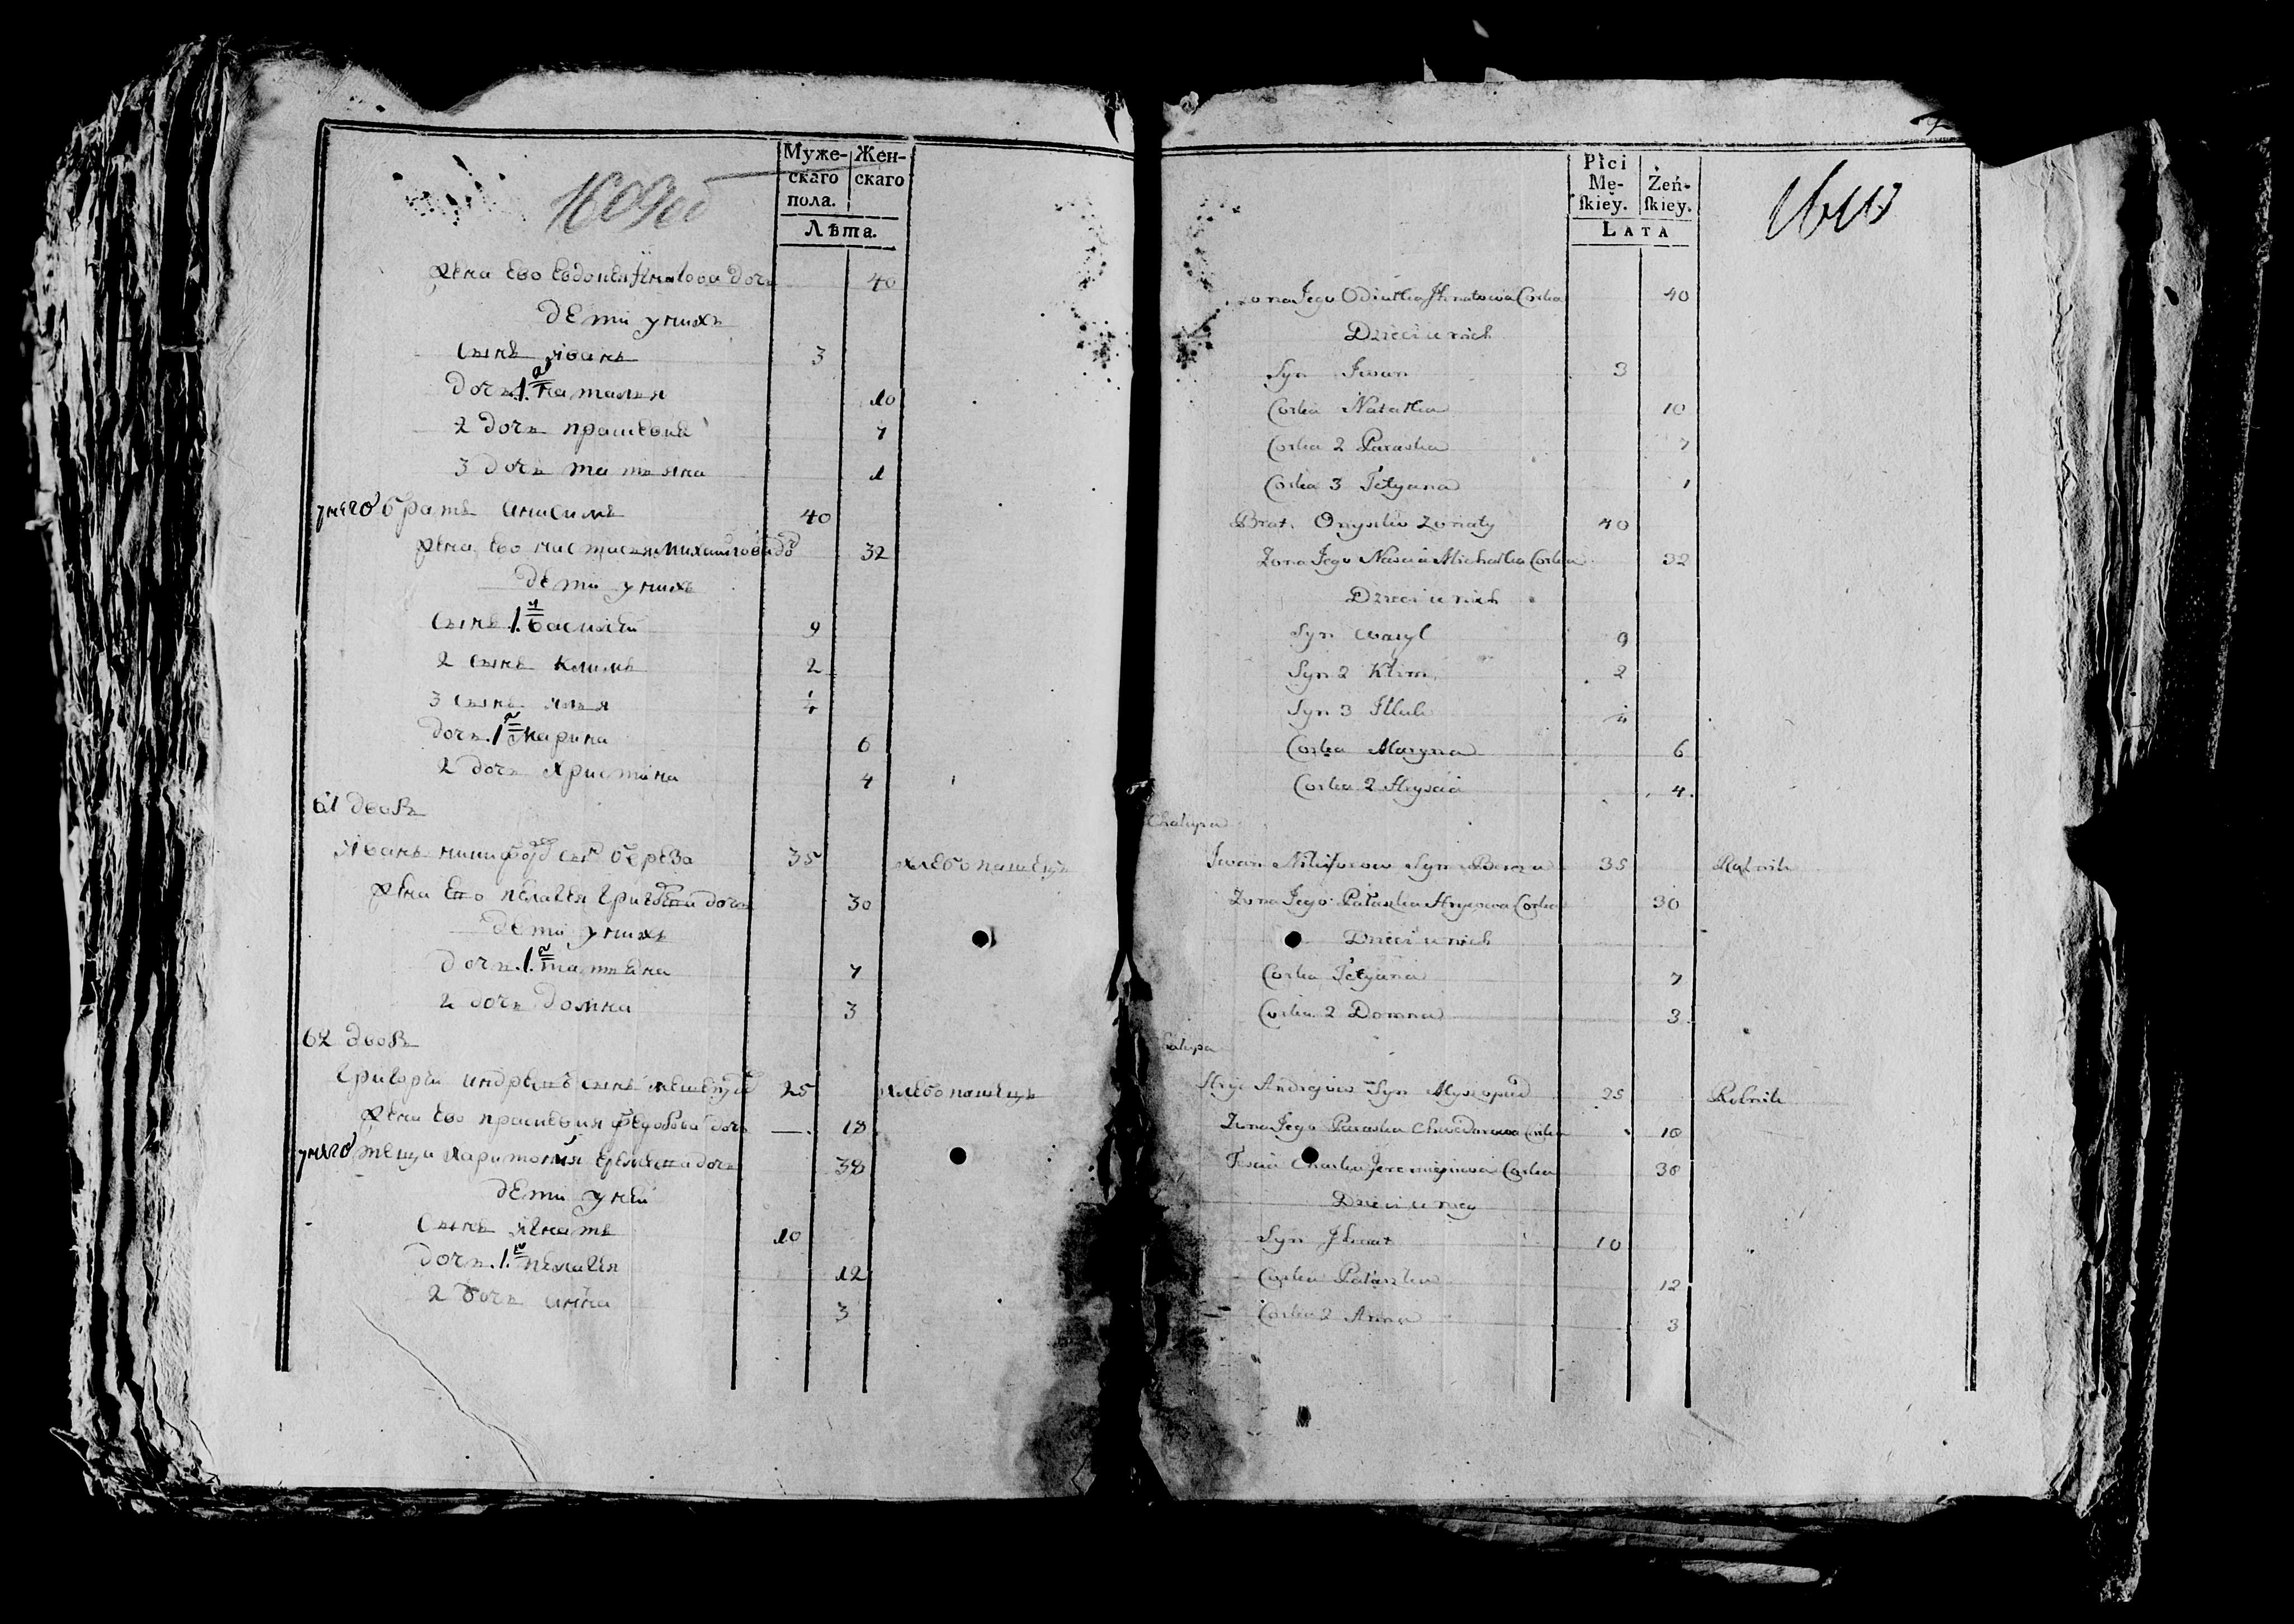 1609об
Муже- Жен-
скаго скаго
пола.
Лѣта.
жена ево Евдокея Гнатова дочь 40
дети у нихъ
сынъ иванъ 3
дочь 1я наталья 10
2 дочь прасковья 7
3 дочь татьяна 1
у него братъ анисимъ 40
жена ево настасья михайлова до 32
дети у нихъ
сынъ 1й василей 9
2 сынъ климъ 2
3 сынъ илья
дочь 1я марина 6
2 дочь христина 4
61 дворъ
иванъ никифоровъ сынъ береза 35 хлебопашецъ
жена ево пелагея григорьева дочь 30
дети у нихъ
дочь 1я татьяна 7
2 дочь домна 3
62 дворъ
григорей андреевъ сынъ 25 хлебопашецъ
жена ево прасковия федорова дочь 18
у него теща харитония еремеева дочь 38
дети у ней
сынъ игнатъ 10
дочь 1я пелагея 12
2 дочь анна 3
1610
Płci
Mę- Żeń-
ſkiey. ſkiey.
LATA
Zona Jego Odiutka Jhnatowa Corka 40
Dzieci u nich
Syn Jwan 3
Corka Natałka 10
Corka 2 Paraska 7
Corka 3 Tetyana 1
Brat Onysko zonaty 40
Zona Jego Nascia Michałka Corka 32
Dzieci u nich
Syn Wasyl 9
Syn 2 Klim 2
Syn 3 Illuk
Corka Maryna 6
Corka 2 Hryscia 4
Chałupa
Jwan Nikiforow Syn Bereza 35 Rolnik
Zona Jego Pałaszka Hrycowa Corka 30
Dzieci u nich
Corka Tetyana 7
Corka 2 Domna 3
Chałupa
Hryć Andrejów Syn 25 Rolnik
Zona Jego Paraska Chwedorowa Corka 18
Tescia Charka Jeremiejowa Corka 38
Dzieci u niey
Syn Jhnat 10
Corka Pałaszka 12
Corka 2 Anna 3